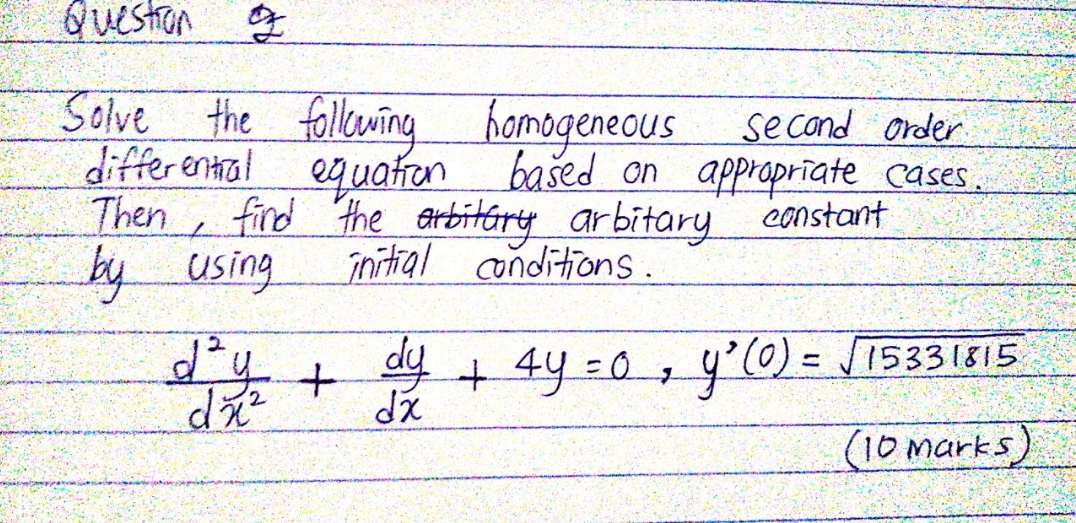 Question
Solve the following homogeneous second order
differential equation based on appropriate cases.
Then, find the arbitary arbitary constant
by using initial conditions.
d²y/dx² + dy/dx + 4y = 0, y'(0) = √15331815
(10 marks)